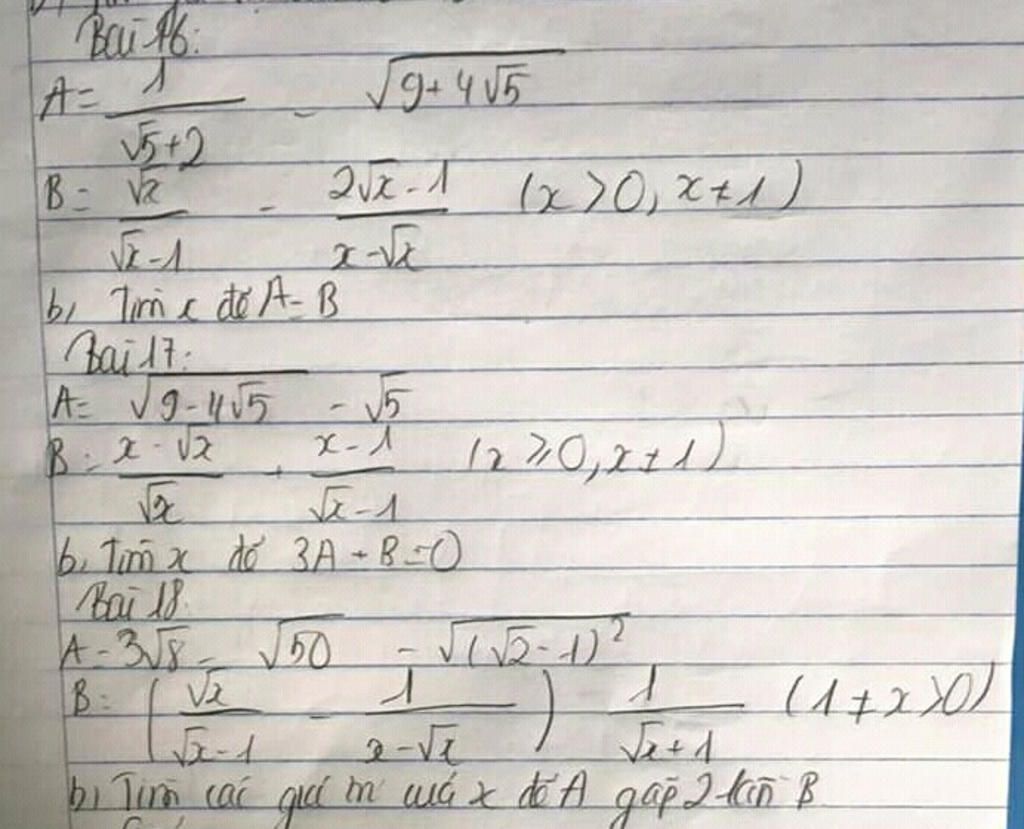 Bài 16:
A = 1/(√5+2) - √(9+4√5)
B = √x/(√x-1) - (2√x-1)/(x-√x) (x>0, x≠1)
b, Tìm x để A = B
Bài 17:
A = √(9-4√5) - √5
B = (x-√x)/√x + (x-1)/(√x-1) (x≥0, x≠1)
b, Tìm x để 3A + B = 0
Bài 18.
A = 3√8 - √50 - √((√2-1)²)
B = (√x/(√x-1) - 1/(x-√x)) 1/(√x+1) (1≠x>0)
b, Tìm các giá trị của x để A gấp 2 lần B